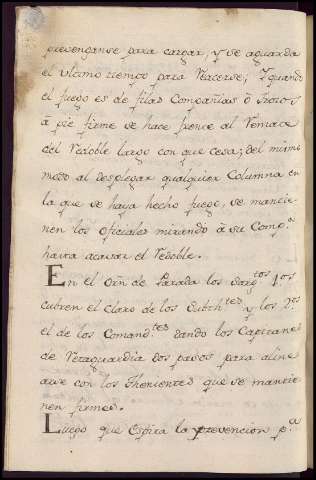 prevenganse para cargar, y se aguarda
el ultimo tiempo para Veacerse; Y quando
el fuego es de filas Compañias ó Trozos
á pie firme se hace frente al Vematar
del Vedoble largo con que cesa; del mismo
modo al desplegar qualquier Columna en
la que se haya hecho fuego, se mantie-
nen los oficiales mirando á su Comp.ª
hasta acavar el Vedoble.
En el Orn de Parada los Sarg.tos 1.os
cubren el claro de los Subth.tes y los 2.os
el de los Comand.tes dando los Capitanes
de Vetaguardia dos pasos para aline
arse con los Thenientes que se mantie
nen firmes.
Luego que Espira la prevencion p.ª